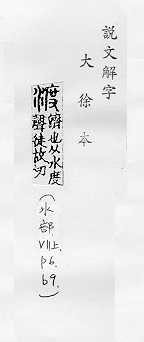 說文解字
大徐本
渡 濟也从水度
聲徒故切
(水部
VII上,
p6.
b9.)